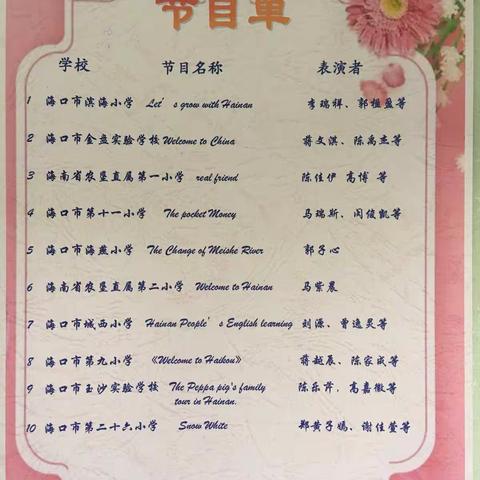 节目单
学校 节目名称 表演者
1 海口市滨海小学 Let's grow with Hainan 李瑞祥、郭桓盈等
2 海口市金盘实验学校 Welcome to China 蒋文淇、陈禹杰等
3 海南省农垦直属第一小学 real friend 陈佳伊 高博 等
4 海口市第十一小学 The pocket Money 马瑞斯、闵俊凯等
5 海口市海燕小学 The Change of Meishe River 郭子心
6 海南省农垦直属第二小学 Welcome to Hainan 马紫晨
7 海口市城西小学 Hainan People's English learning 刘源、曾逸灵等
8 海口市第九小学 《Welcome to Haikou》 蒋越辰、陈家成等
9 海口市玉沙实验学校 The Peppa pig's family 陈乐芹、高嘉徽等
tour in Hainan.
10 海口市第二十六小学 Snow White 郑黄子嫣、谢佳萱等